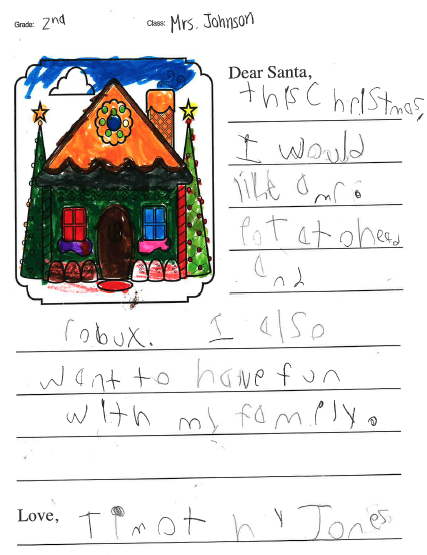 Grade: 2nd Class: Mrs. Johnson
Dear Santa,
this Christmas,
I would
like a mr.
potatohead
and
robux. I also
want to have fun
with my family.
Love, Timothy Jones